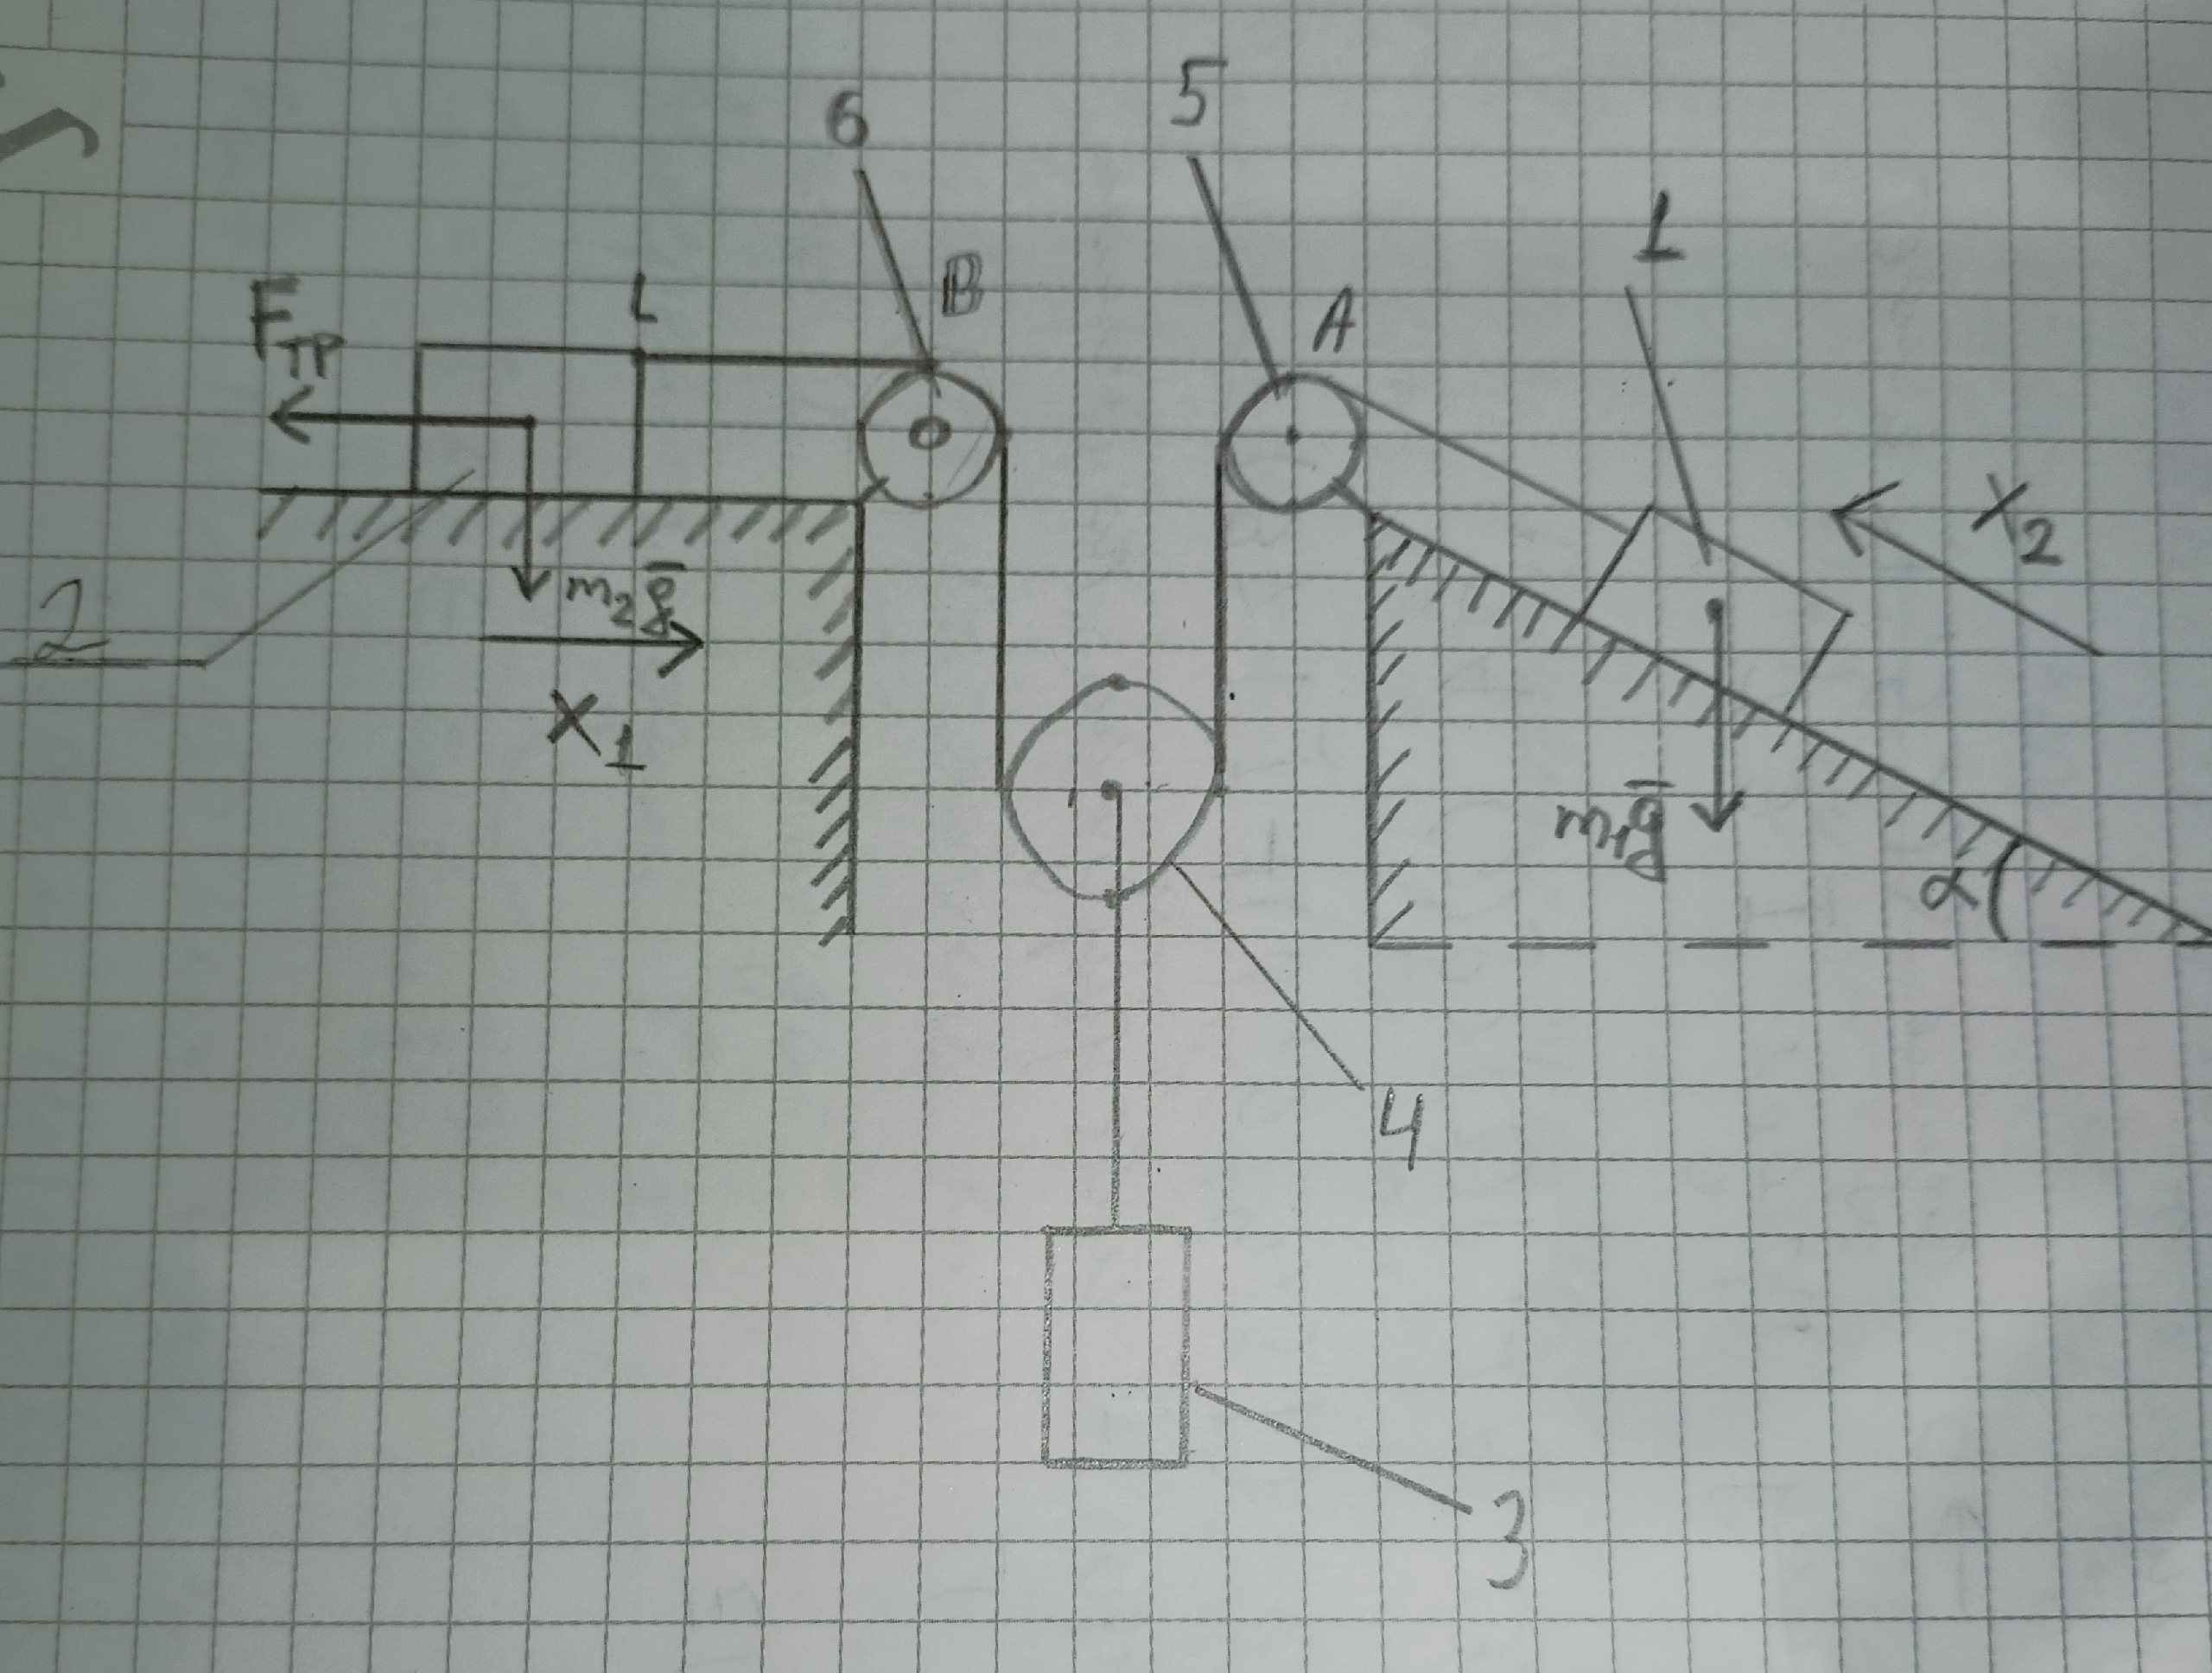 6
5
1
B
A
L
F_TP
X_2
m_2 g̅
2
X_1
m_1 g̅
α
4
3